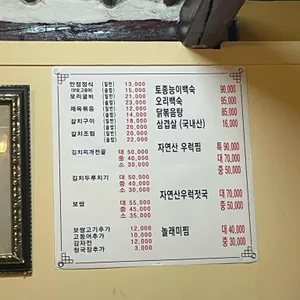 만정정식 (일반) 13,000
(보쌈,고등어) (솔밥) 15,000
보리굴비 (일반) 21,000
(솔밥) 23,000
제육볶음 (일반) 12,000
(솔밥) 14,000
갈치구이 (일반) 18,000
(솔밥) 19,000
갈치조림 (일반) 20,000
(솔밥) 22,000
김치찌개전골 대 50,000
중 40,000
소 30,000
김치두루치기 대 50,000
중 40,000
소 30,000
보쌈 대 55,000
중 45,000
소 35,000
보쌈고기추가 12,000
고등어추가 10,000
감자전 12,000
청국장추가 3,000
토종능이백숙 90,000
오리백숙 95,000
닭볶음탕 85,000
삼겹살 (국내산) 16,000
자연산 우럭찜 특 90,000
대 70,000
중 50,000
자연산우럭젓국 대 70,000
중 50,000
놀래미찜 대 40,000
중 30,000